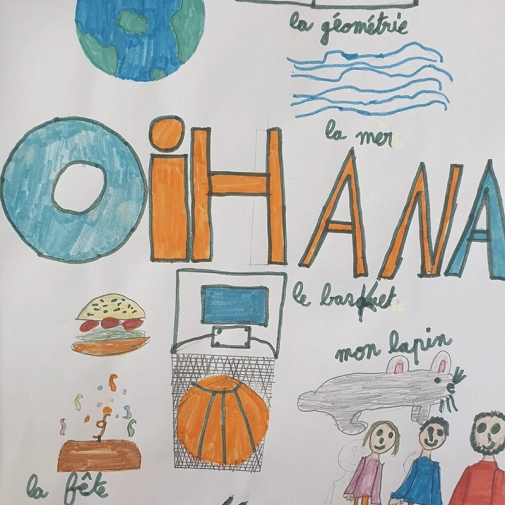 la géométrie
la mer
OiHANA
le basket
mon lapin
la fête